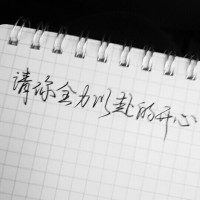 请你全力以赴的开心